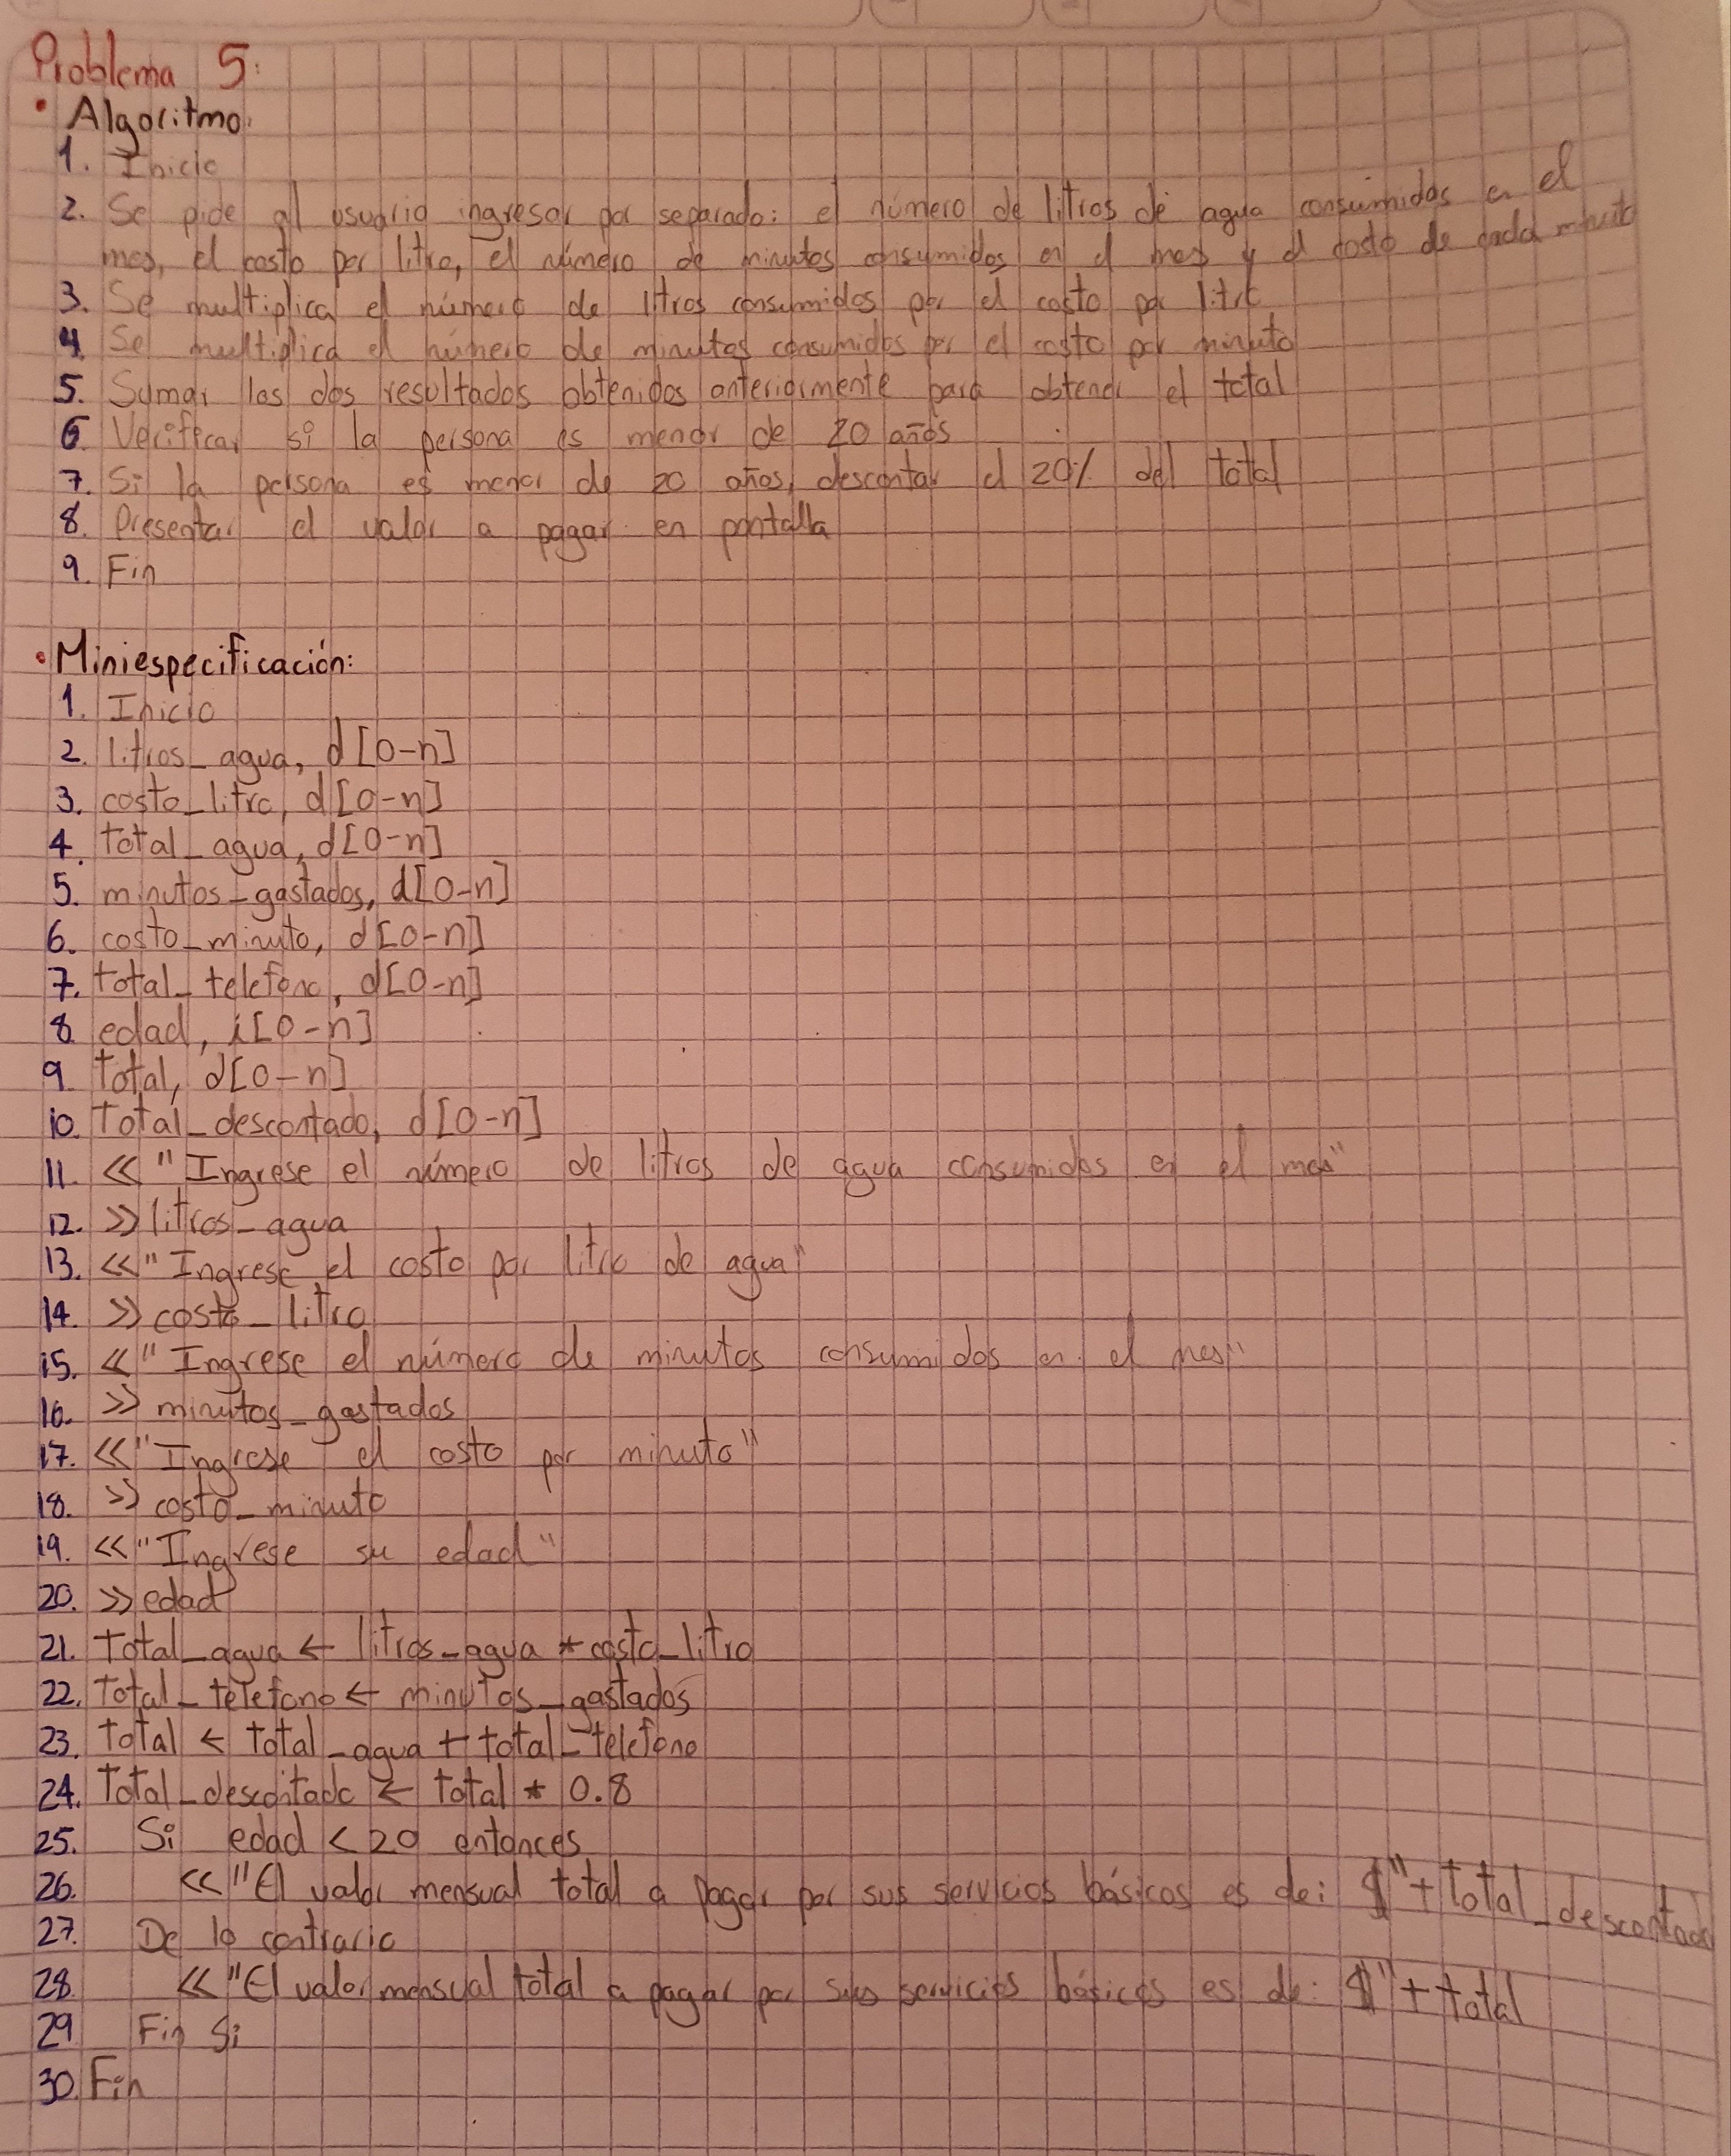 Problema 5:
• Algoritmo:
1. Inicio
2. Se pide al usuario ingresar por separado: el número de litros de agua consumidos en el
mes, el costo por litro, el número de minutos consumidos en el mes y el costo de cada minuto
3. Se multiplica el número de litros consumidos por el costo por litro
4. Se multiplica el número de minutos consumidos por el costo por minuto
5. Sumar los dos resultados obtenidos anteriormente para obtener el total
6. Verificar si la persona es menor de 20 años
7. Si la persona es menor de 20 años, descontar el 20% del total
8. Presentar el valor a pagar en pantalla
9. Fin
• Miniespecificación:
1. Inicio
2. litros_agua, d[0-n]
3. costo_litro, d[0-n]
4. total_agua, d[0-n]
5. minutos_gastados, d[0-n]
6. costo_minuto, d[0-n]
7. total_telefono, d[0-n]
8. edad, i[0-n]
9. total, d[0-n]
10. total_descontado, d[0-n]
11. << "Ingrese el número de litros de agua consumidos en el mes"
12. >> litros_agua
13. << "Ingrese el costo por litro de agua"
14. >> costo_litro
15. << "Ingrese el número de minutos consumidos en el mes"
16. >> minutos_gastados
17. << "Ingrese el costo por minuto"
18. >> costo_minuto
19. << "Ingrese su edad"
20. >> edad
21. total_agua ← litros_agua * costo_litro
22. total_telefono ← minutos_gastados
23. total ← total_agua + total_telefono
24. total_descontado ← total * 0.8
25. Si edad < 20 entonces
26. << "El valor mensual total a pagar por sus servicios básicos es de: $" + total_descontado
27. De lo contrario
28. << "El valor mensual total a pagar por sus servicios básicos es de: $" + total
29. Fin Si
30. Fin